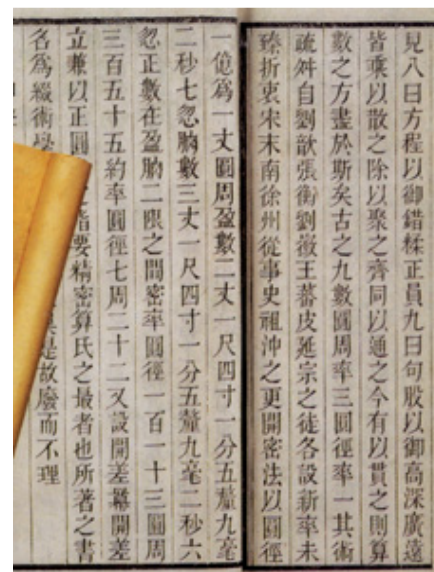 見八曰方程以御錯糅正員九曰句股以御高深廣遠
皆乘以散之除以聚之齊同以通之今有以貫之則算
數之方盡於斯矣古之九數圓周率三圓徑率一其術
疏舛自劉歆張衡劉徽王蕃皮延宗之徒各設新率未
臻折衷宋末南徐州從事史祖沖之更開密法以圓徑
一億爲一丈圓周盈數三丈一尺四寸一分五釐九毫
二秒七忽朒數三丈一尺四寸一分五釐九毫二秒六
忽正數在盈朒二限之間密率圓徑一百一十三圓周
三百五十五約率圓徑七周二十二又設開差冪開差
立兼以正圓指要精密算氏之最者也所著之書
名爲綴術學是故廢而不理